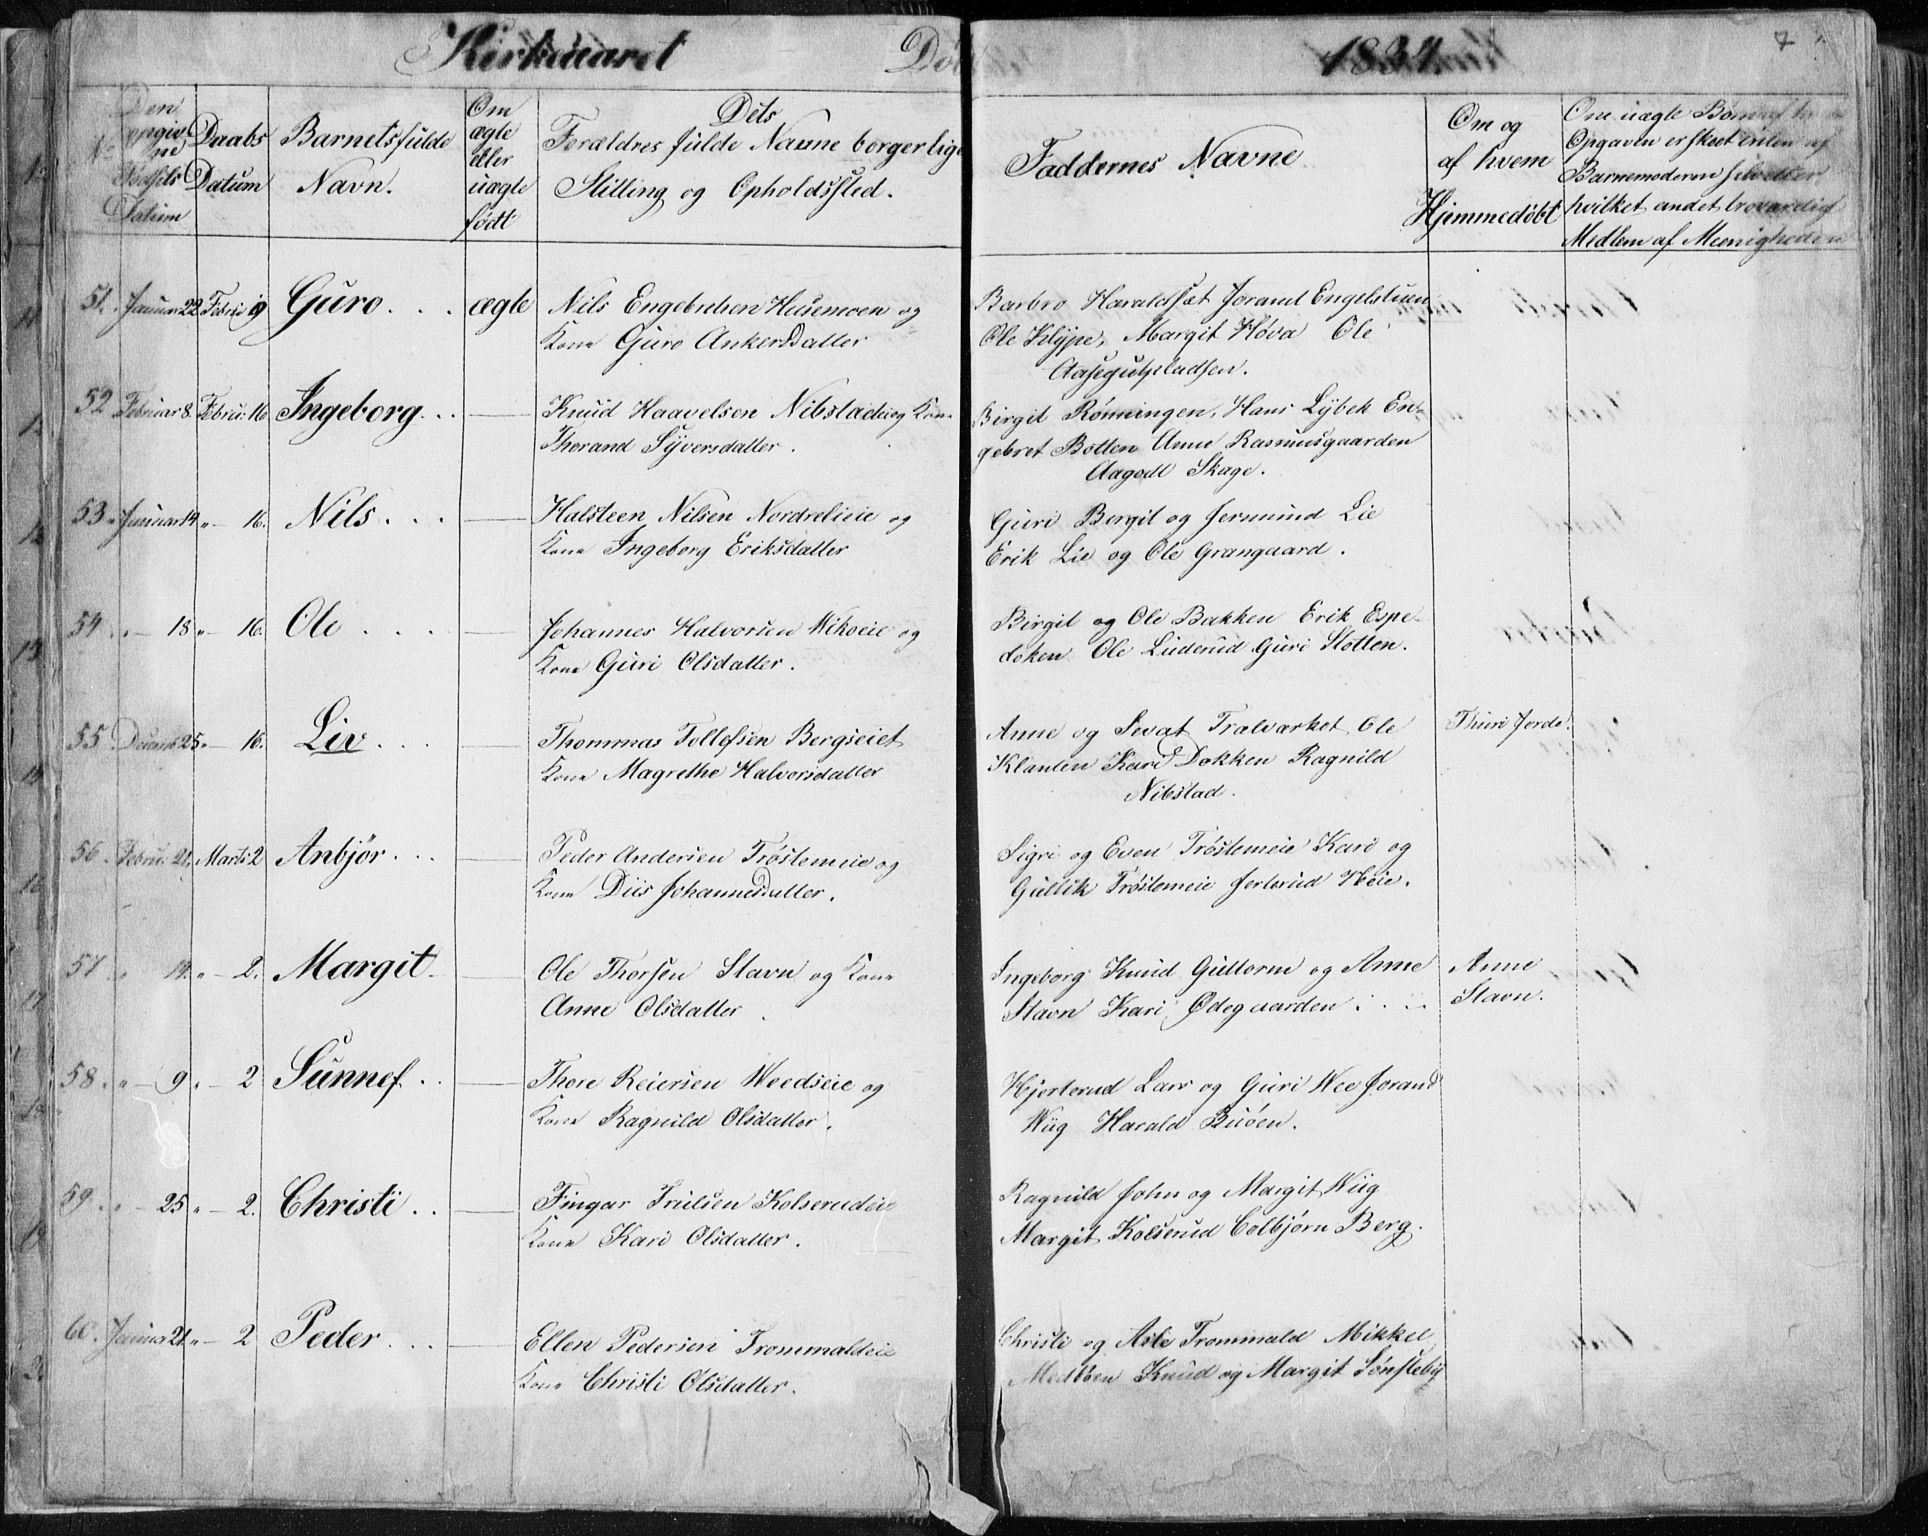 Kirkeaaret
Dø
1834
7
No
Den opgivne Fødsels Datum
Daabs Datum
Barnets fulde Navn.
Om ægte eller uægte født
Dets Forældres fulde Navne borgerlige Stilling og Opholdssted.
Faddernes Navne
Om og af hvem Hjemmedøbt
Om uægte Børn
Opgaven er skeet enten af
Barnemoderen selv eller
hvilket andet troværdig
Medlem af Meenigheden
51. Januar 22 Febru 9 Guro . . . ægte Nils Engebretsen Husemoen og
Kone Guro Ankersdatter
Barbro Haraldset Jorand Engelstuen
Ole Klype, Margit Høva Ole
Aasegutpladsen.
52 Februar 8. Febru. 16 Ingeborg . . — Knud Haavelsen Nibstadeie og Kone
Thorand Syversdatter.
Birgit Rønningen, Hans Lybek En-
gebret Botten Anne Rasmusgaarden
Aagodt Skage.
53 Januar 14 " — 16. Nils . . . — Halsteen Nilsen Nordrelieie og
Kone Ingeborg Eriksdatter
Guri Bergit og Jermund Lie
Erik Lie og Ole Grangaard.
54 " — 18 " — 16. Ole . . . — Johannes Halvorsen Wikseie og
Kone Guri Olsdatter.
Birgit og Ole Bakken Erik Espe-
doken Ole Luderud Guri Slotten.
55 Decemb 25 " — 16. Liv . . . — Thommas Tollefsen Bergseiet
Kone Magrethe Halvorsdatter
Anne og Sevat Tralvarket Ole
Klanten Kari Dokken Ragnild
Nibstad.
Thuri Jorde.
56 Febru. 21. Marts 2 Anbjør . . . — Peder Andersen Trøstemeie og
Kone Diis Johannesdatter.
Sigri og Even Trøstemeie Kari og
Gullik Trøstemeie Jerterud Heie.
57 " 14. " — 2. Margit — Ole Thorsen Stavn og Kone
Anne Olsdatter
Ingeborg Knud Guttorm og Anne
Stavn Kari Ødegaarden . . .
Anne
Stavn.
58. " — 9 " — 2 Sunnef . . — Thore Reiersen Weedseie og
Kone Ragnild Olsdatter.
Hjorterud Lars og Guri Wee Jorand
Wiig Harald Buøen.
59 " — 25 " — 2. Christi . . — Fingar Trulsen Kolserudeie
Kone Kari Olsdatter.
Ragnild John og Margit Wiig
Margit Kolserud Colbjørn Berg.
60. Januar 21 " — 2 Peder . . . — Ellen Pedersen Trommaldeie
Kone Christi Olsdatter.
Christi og Asle Trommald Mikkel
Medbøen Knud og Margit Sønsteby